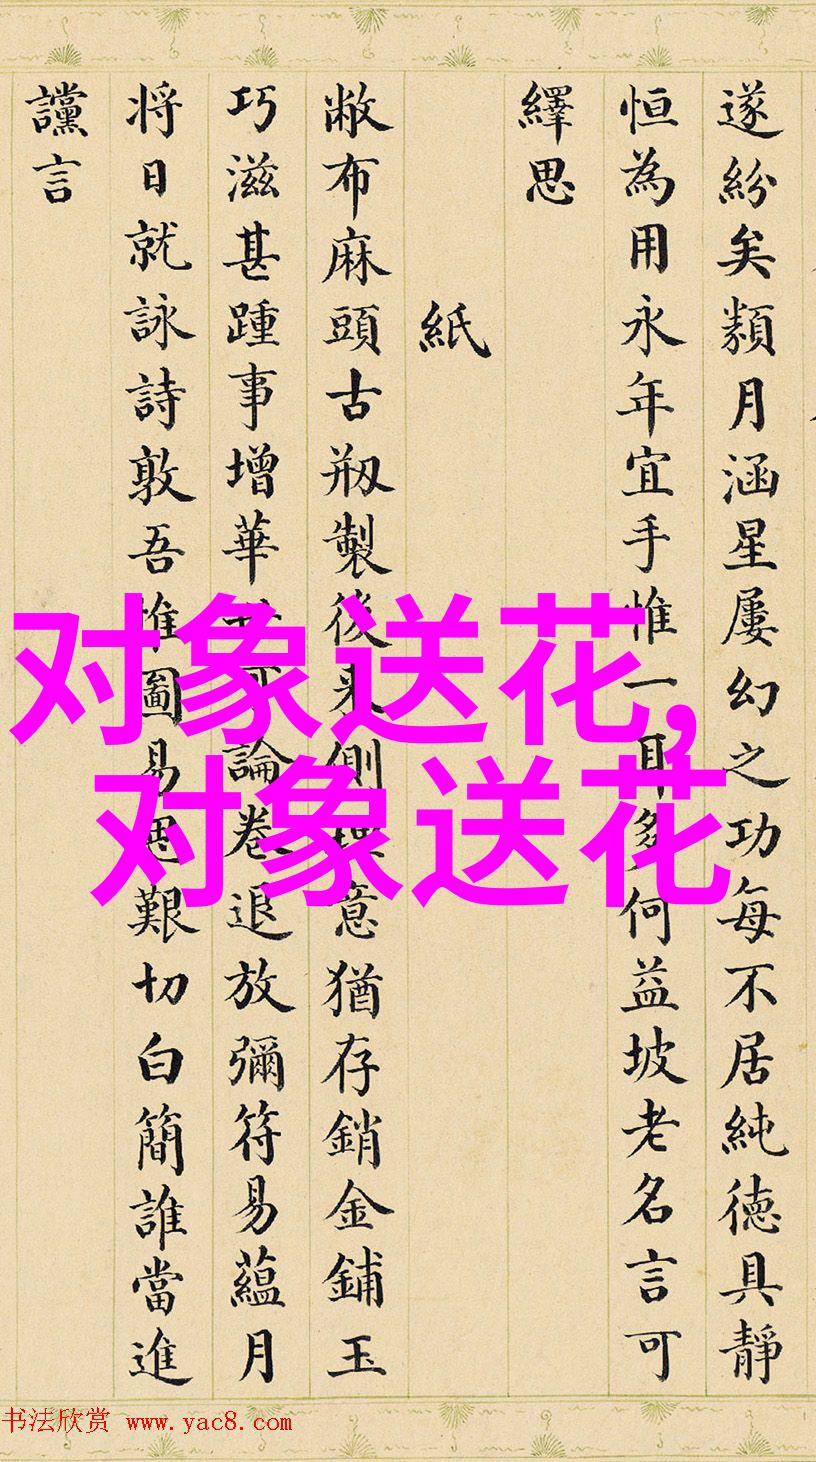 遂紛矣類月涵星屢幻之功每不居純德具靜
恒為用永年宜手惟一耳多何益坡老名言可
繹思
紙
敝布麻頭古刱製後来側理意猶存銷金鋪玉
巧滋甚踵事增華論卷退放彌符易蘊月
将日就詠詩敦吾惟圖易思艱切白簡誰當進
讜言
对象送花,
对象送花
书法欣赏 www.yac8.com